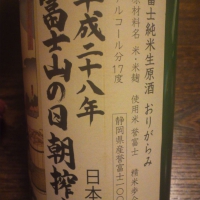 富士純米生原酒 おりがらみ
原材料名 米・米麹
アルコール分17度
使用米 誉富士 精米歩合
静岡県産誉富士100
平成二十八年
富士山の日朝搾
日本